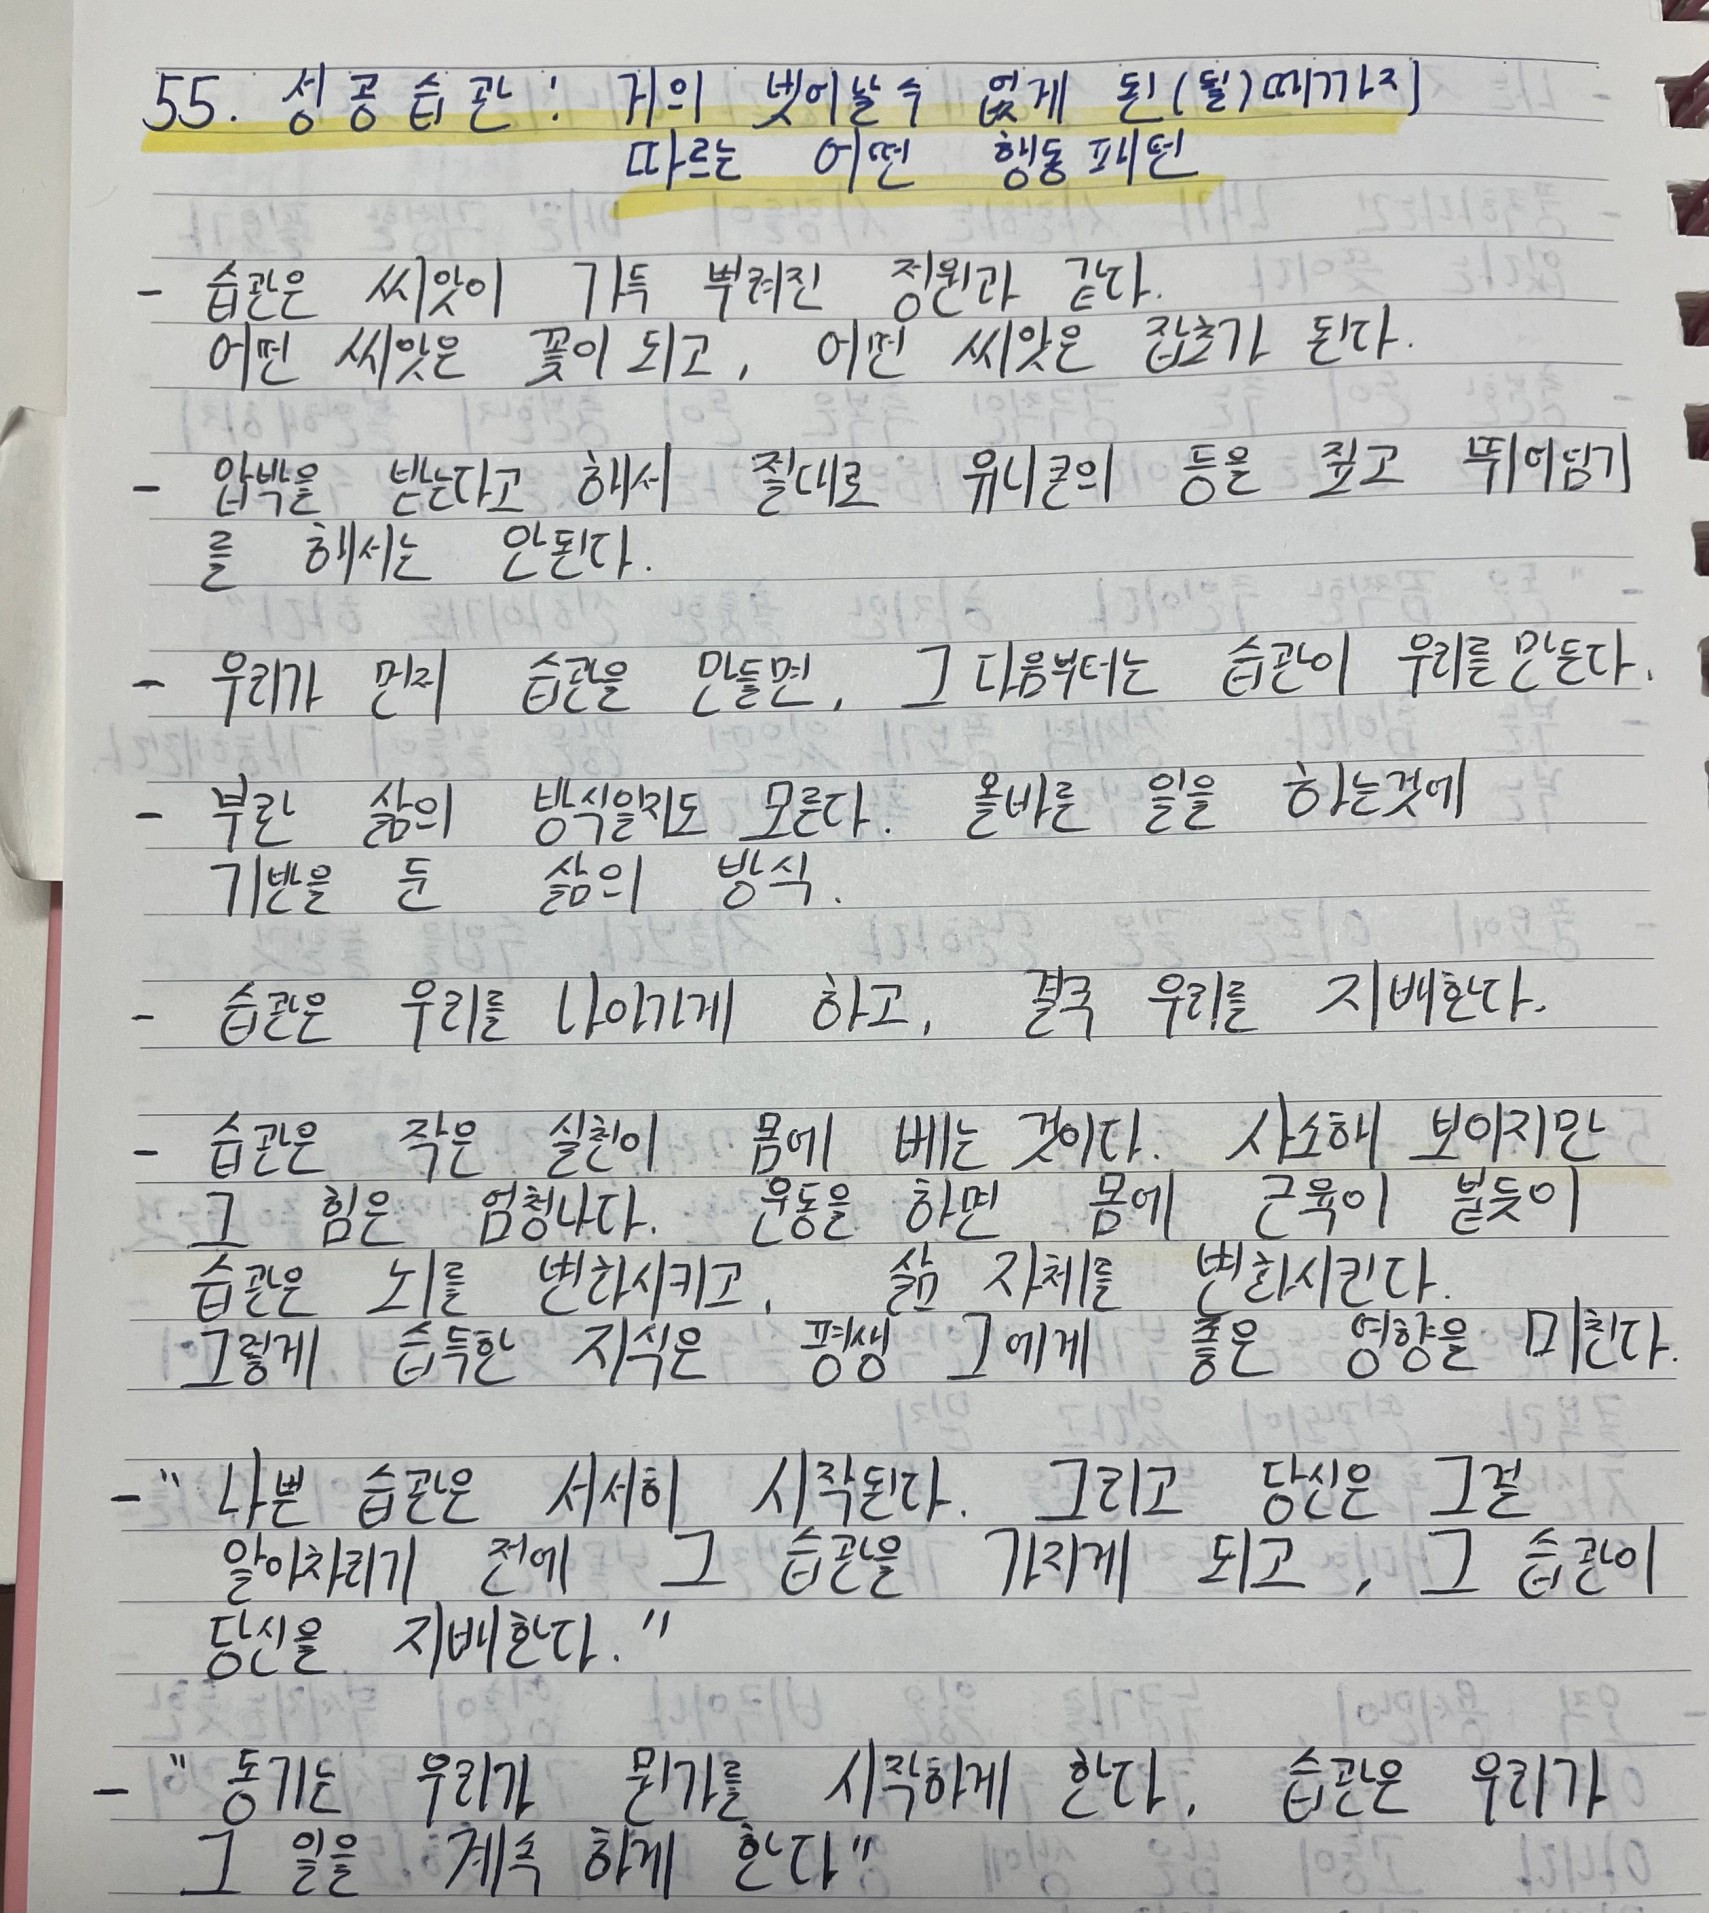 55. 성공습관: 거의 벗어날수 없게 된(될)때까지
따르는 어떤 행동패턴
- 습관은 씨앗이 가득 뿌려진 정원과 같다.
어떤 씨앗은 꽃이 되고, 어떤 씨앗은 잡초가 된다.
- 압박을 받는다고 해서 절대로 유니콘의 등을 짚고 뛰어넘기
를 해서는 안된다.
- 우리가 먼저 습관을 만들면, 그 다음부터는 습관이 우리를 만든다.
- 부란 삶의 방식일지도 모른다. 올바른 일을 하는것에
기반을 둔 삶의 방식.
- 습관은 우리를 나아가게 하고, 결국 우리를 지배한다.
- 습관은 작은 실천이 몸에 베는 것이다. 사소해 보이지만
그 힘은 엄청나다. 운동을 하면 몸에 근육이 붙듯이
습관은 뇌를 변화시키고, 삶 자체를 변화시킨다.
그렇게 습득한 지식은 평생 그에게 좋은 영향을 미친다.
- "나쁜 습관은 서서히 시작된다. 그리고 당신은 그걸
알아차리기 전에 그 습관을 가지게 되고, 그 습관이
당신을 지배한다."
- "동기는 우리가 뭔가를 시작하게 한다. 습관은 우리가
그 일을 계속 하게 한다"